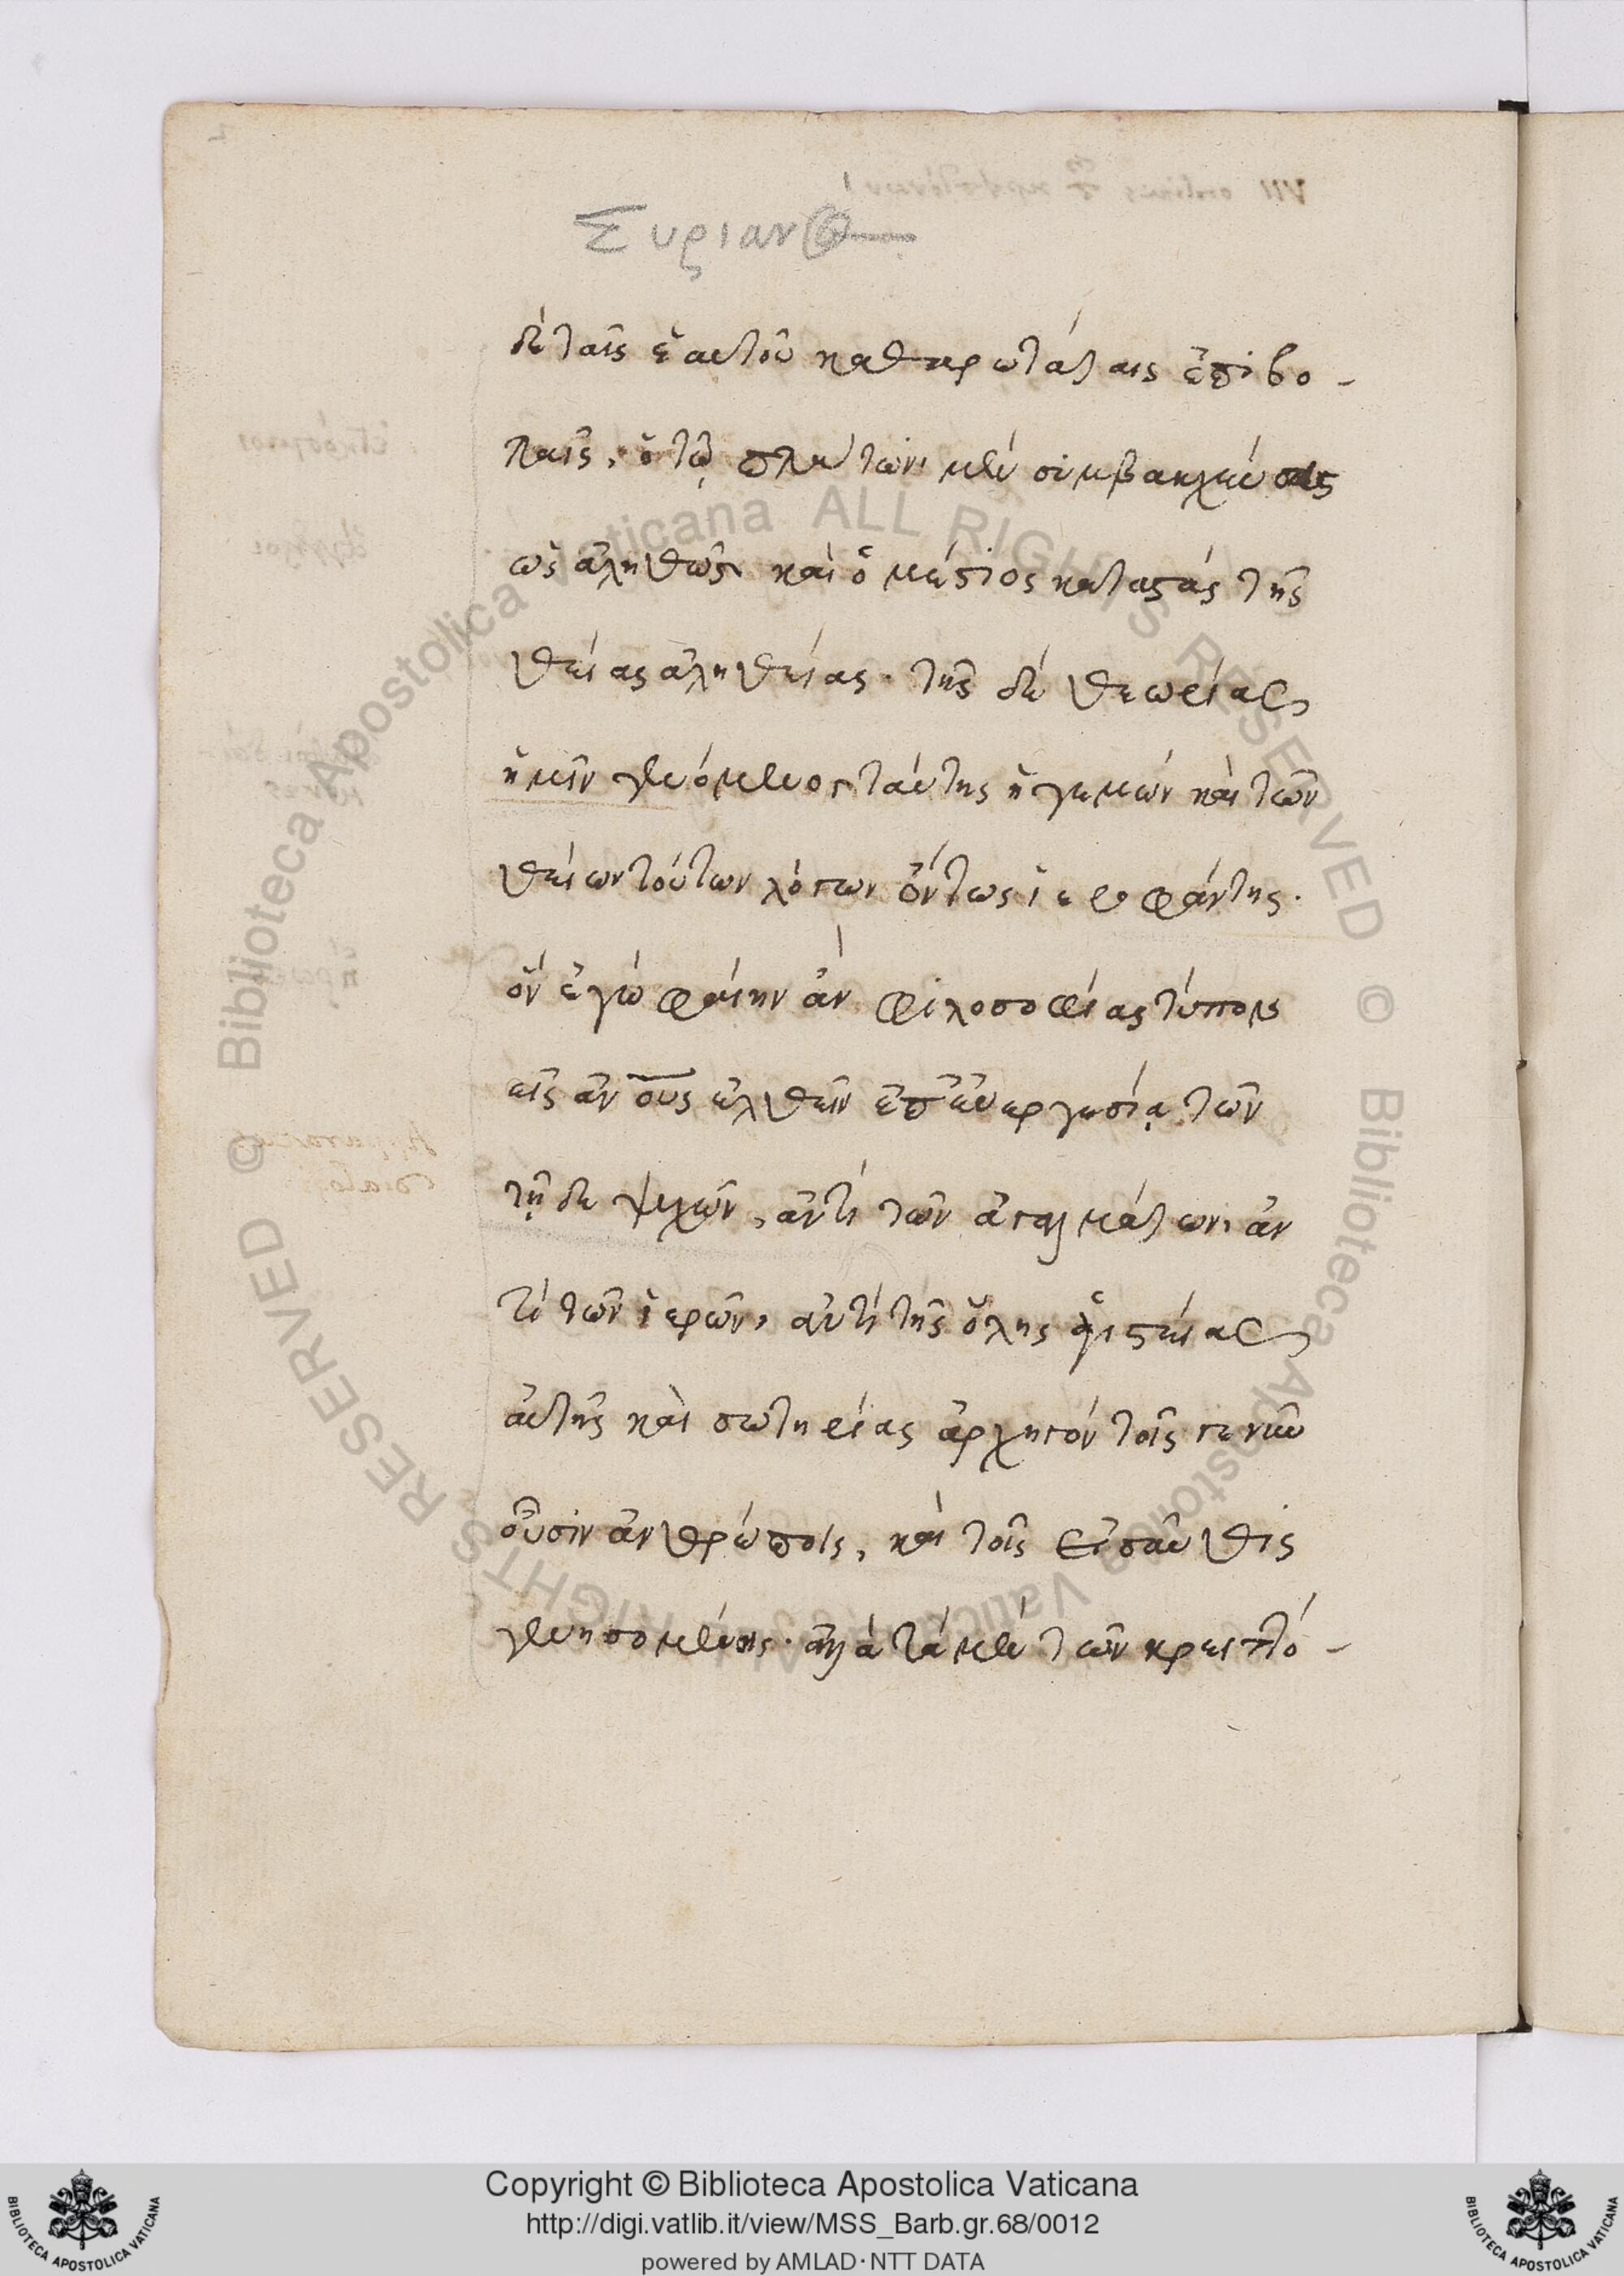 Συριανὸς
δὲ ταῖς ἑαυτοῦ καθαρωτάταις ἐπιβο-
λαῖς, ὁ τῷ πλάτωνι μὲν συμβακχεύσας
ὡς ἀληθῶς, καὶ ὁ μέστος καταστὰς τῆς
θείας ἀληθείας. τῆς δὲ θεωρίας
ἡμῖν γενόμενος ταύτης ἡγεμὼν καὶ τῶν
θείων τούτων λόγων ὄντως ἱεροφάντης.
ὃν ἐγὼ φαίην ἂν φιλοσοφίας τύπον
εἰς ἀνους ἐλθεῖν ἐπ' εὐεργεσίᾳ τῶν
τῇδε ψυχῶν, ἀντὶ τῶν ἀγαλμάτων, ἀν
τὶ τῶν ἱερῶν, ἀντὶ τῆς ὅλης ἁγιστείας
αὐτῆς καὶ σωτηρίας ἀρχηγὸν τοῖς γε νῦν
οὖσιν ἀνθρώποις, καὶ τοῖς εἰσαῦθις
γενησομένοις. ἀλλὰ τὰ μὲν τῶν κρειττό-
Copyright © Biblioteca Apostolica Vaticana
http://digi.vatlib.it/view/MSS_Barb.gr.68/0012
powered by AMLAD·NTT DATA
BIBLIOTECA APOSTOLICA VATICANA
BIBLIOTECA APOSTOLICA VATICANA
© Biblioteca Apostolica Vaticana ALL RIGHTS RESERVED
© Biblioteca Apostolica Vaticana ALL RIGHTS RESERVED